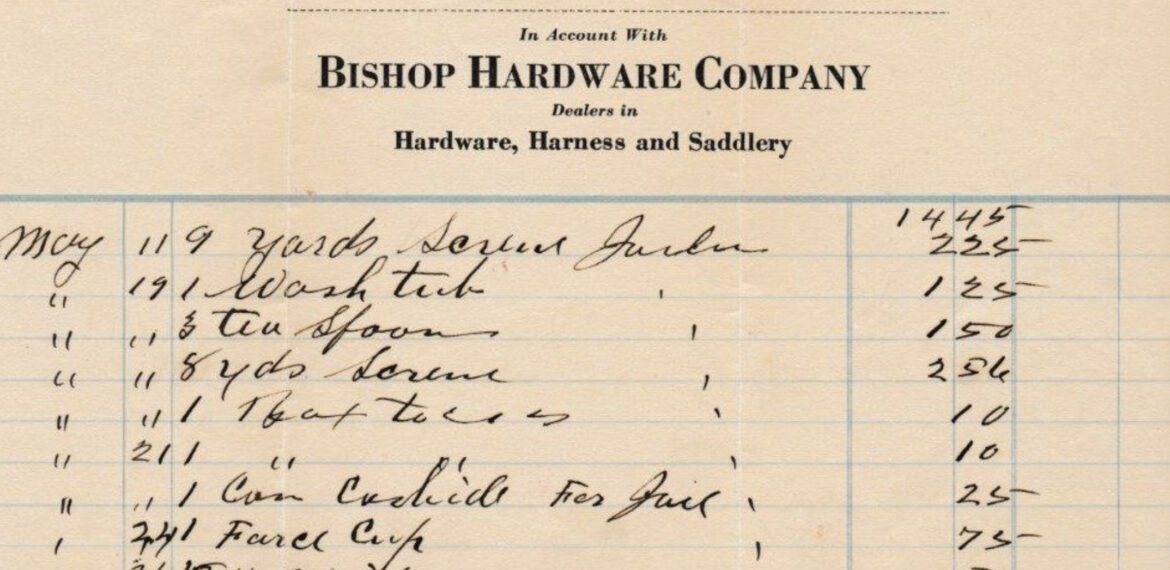 In Account With
BISHOP HARDWARE COMPANY
Dealers in
Hardware, Harness and Saddlery
14 45
May 11 9 yards Screen 2 25
" 19 1 Wash tub ' 1 25
" " 3 tea Spoons ' 1 50
" " 8 yds Screen ' 2 56
" " 1 Box tacks ' 10
" 21 1 " " ' 10
" " 1 Can For Jail ' 25
' 24 1 Cup ' 75